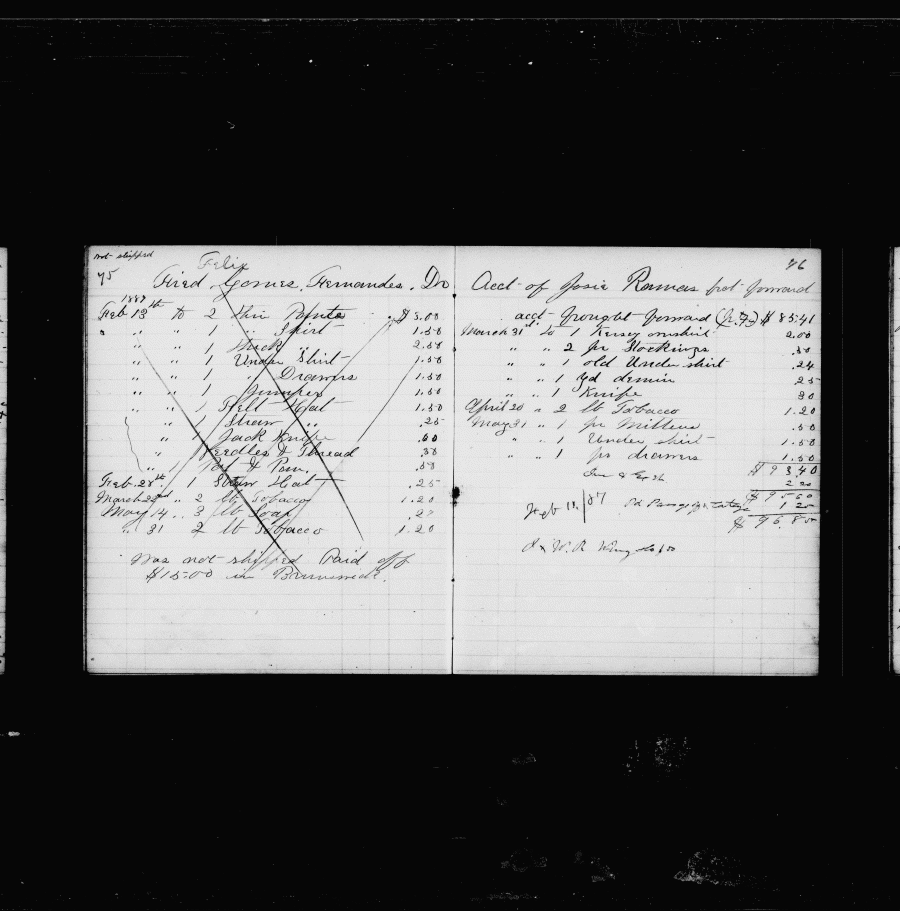 not shipped
75
Felix
Fred Gomes Fernandes. Dr
1887
Feb 13th to 2 Thin Pants $3.00
" " " 1 " Shirt 1.50
" " " 1 Thick " 2.50
" " 1 Under Shirt 1.50
" " 1 " Drawers 1.50
" " 1 Jumper 1.50
" " 1 Felt Hat 1.50
" 1 Straw " .25
" 1 Jack Knife .60
" Needles & Thread .30
" 1 Pot & Pan .50
Feb. 28th " 1 Straw Hat .25
March 29nd " 2 lb Tobacco 1.20
May 14 " 3 lb Soap
" 31 2 lb Tobacco 1.20
Was not shipped Paid off
$15.00 in Brunswick.
76
Acct of Josie Ramas brot forward
acct brought forward $85.41
March 31st to 1 Kersey 2.00
" " 2 pr Stockings .50
" " 1 old Under shirt .24
" " 1 yd denim 25
" " 1 Knife 30
April 20 " 2 lb Tobacco 1.20
May 31 " 1 pr Mittens .50
" " 1 Under shirt 1.50
" " 1 pr drawers 1.50
$93.40
2 20
$95 60
Feb 18/87 Pd 1 20
$96.80
W. R. Wing